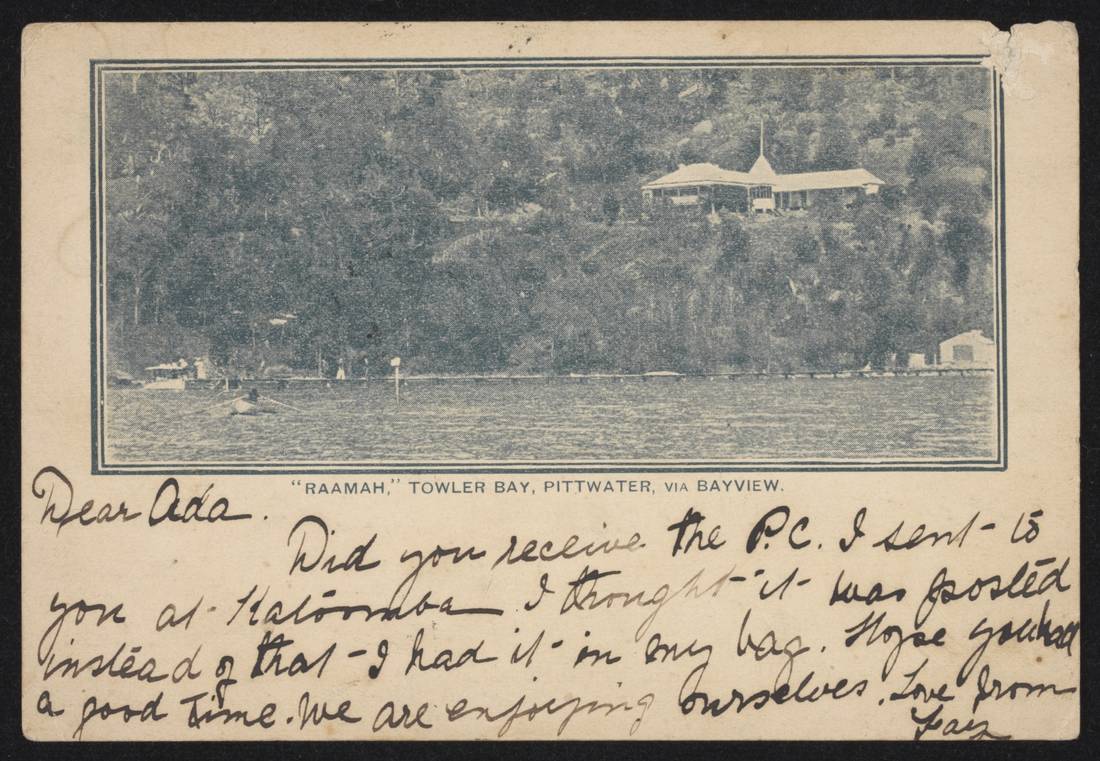 "RAAMAH," TOWLER BAY, PITTWATER, VIA BAYVIEW.
Dear Ada.
Did you receive the P.C. I sent to
you at Katoomba I thought it was posted
instead of that I had it in my bag. Hope you had
a good time. We are enjoying ourselves. Love from
Fay